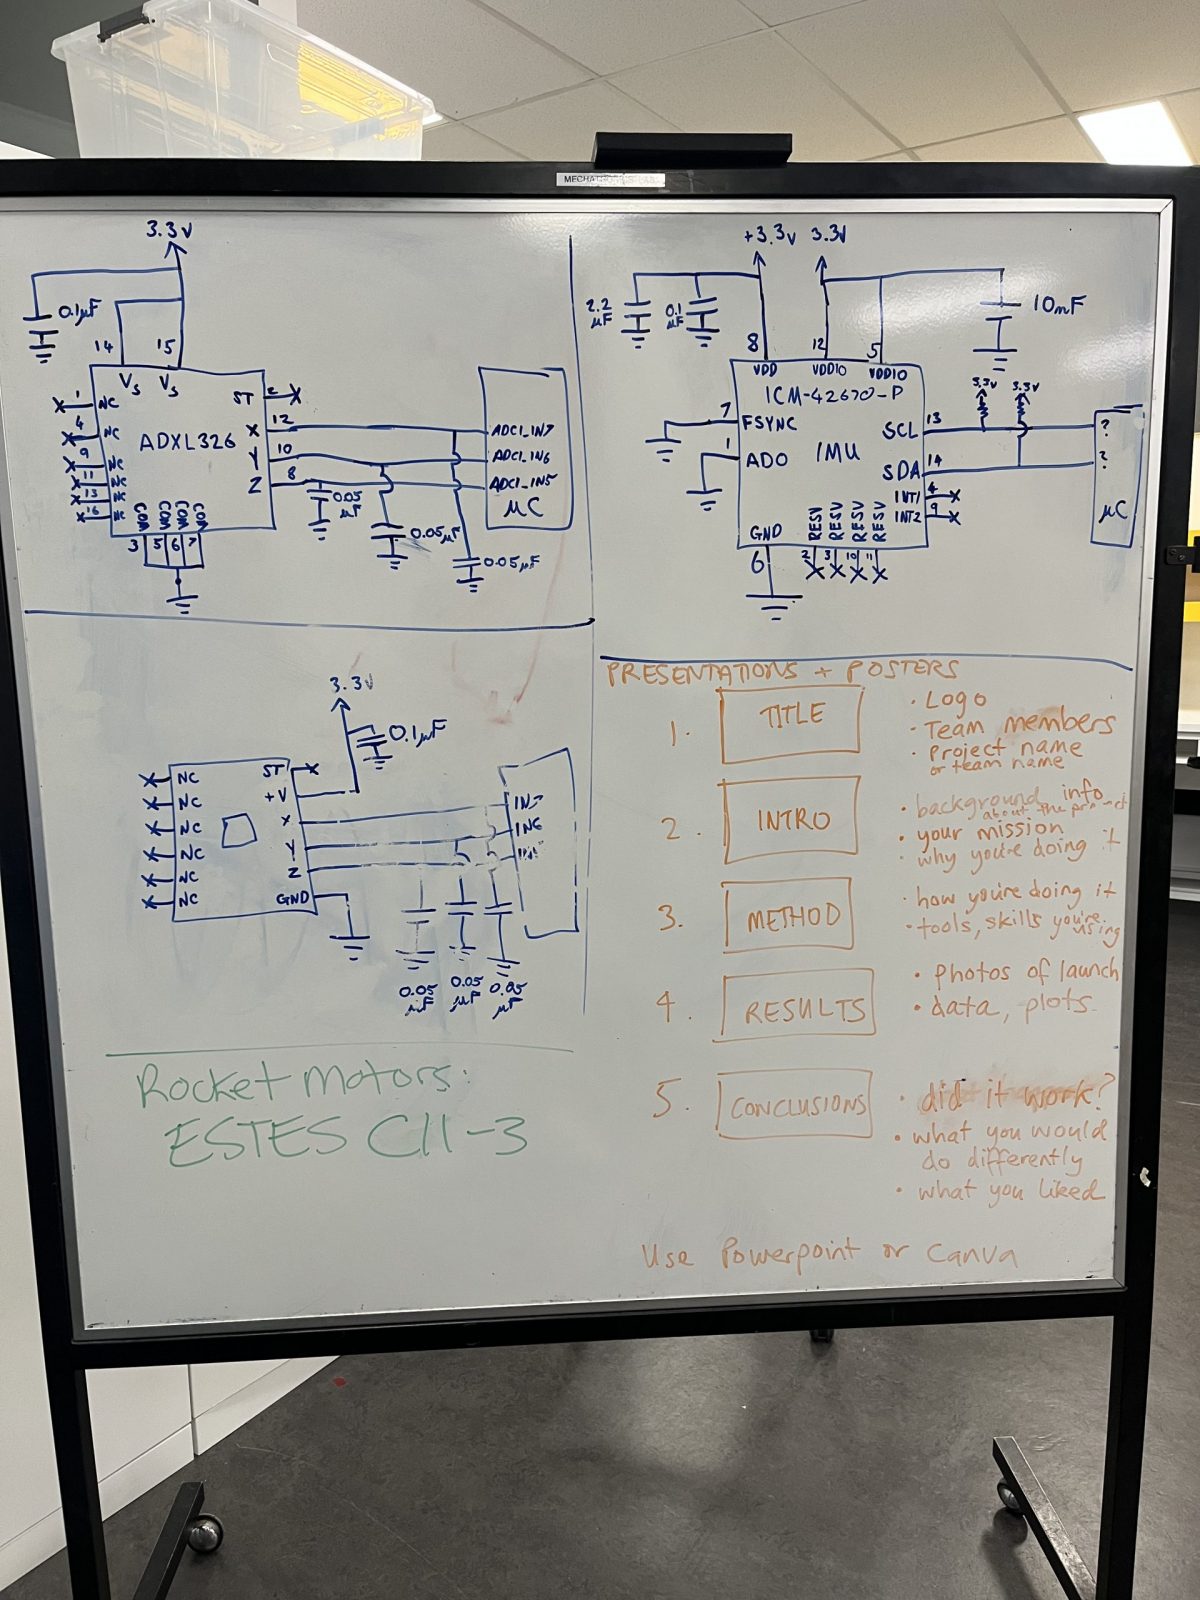 3.3V
0.1µF
14
15
Vs
Vs
1
NC
4
NC
9
NC
11
NC
13
NC
16
NC
ADXL326
ST
2
X
12
Y
10
Z
8
COM
COM
COM
COM
3
5
6
7
ADC1_IN7
ADC1_IN6
ADC1_IN5
µC
0.05
µF
0.05µF
0.05µF
+3.3V
3.3V
2.2
µF
0.1
µF
10nF
8
12
5
VDD
VDDIO
VDDIO
ICM-42670-P
IMU
7
FSYNC
1
ADO
SCL
13
SDA
14
INT1
4
INT2
9
3.3V
3.3V
?
?
µC
GND
6
RESV
RESV
RESV
RESV
2
3
10
11
3.3V
0.1µF
NC
NC
NC
NC
NC
NC
ST
+V
X
Y
Z
GND
IN7
IN6
0.05
µF
0.05
µF
0.05
µF
Rocket Motors:
ESTES C11-3
PRESENTATIONS + POSTERS
1.
TITLE
• Logo
• Team members
• Project name
or team name
2.
INTRO
• background info
about the project
• your mission
• why you're doing it
3.
METHOD
• how you're doing it
• tools, skills you're
using
4.
RESULTS
• Photos of launch
• data, plots.
5.
CONCLUSIONS
• did it work?
• what you would
do differently
• what you liked
Use Powerpoint or Canva